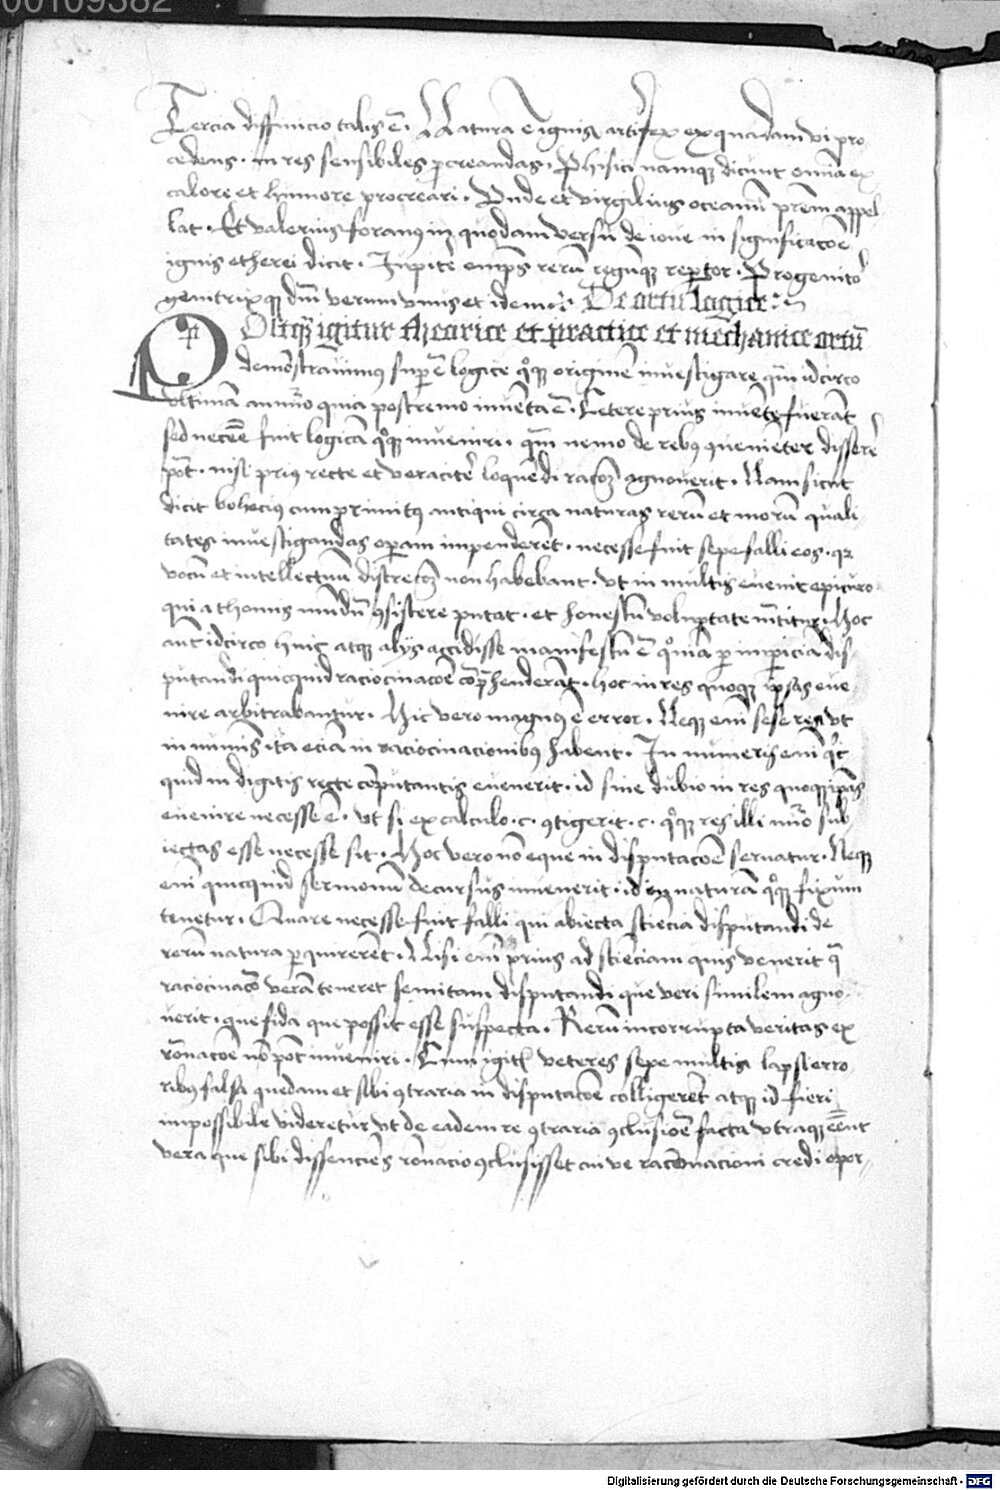 00109382
Tercia diffinicio talis ē. Natura ē ignis artifex ex quadam vi pro
cedens. in res sensibiles ꝓcreandas. Phisici namqꝫ dicunt omīa ex
calore et humore procreari. Unde et virgilius oceanū prēm appel
lat. Et valerius soranus in quodam versu de ioue in significacōe
ignis etherei dicit. Iupitē omps rerū regūqꝫ repertor. Progenitor
genitrixqꝫ dm̄ verum vnus et idem. De ortu logice
Ostqꝫ igitur theorice et practice et mechanice ortū
demōstrauimus suꝑ ē logice qͦqꝫ originē inuestigare quā idcirco
vltimā annūo quia postremo inuenta ē. Cetere prius inuente fuerant
sed necēe fuit logicā qͦqꝫ inueniri. qm̄ nemo de rebꝰ ꝯuenienter disserē
pōt. nisi priꝰ recte et veraciter loquēdi racōꝫ agnouerit. Nam sicut
dicit bohecius cum primitꝰ antiqui circa naturas rerū et morū quali
tates inuestigandas operam impenderēt. necesse fuit sepe falli eos. qꝛ
vocū et intellectuū discrecōꝫ non habebant. vt in multis euenit epicuro
qui athomis mūdū ꝯsistere putat. et honestū voluptate mētitur. Hoc
aut idcirco huic atqꝫ alijs accidisse manifestū ē qͦniā per impericiā dis
putandi quicquid raciocinacōe cōprehenderāt. hoc in res quoqꝫ ipsas eue
nire arbitrabantur. Hic vero magnꝰ ē error. Neqꝫ enī sese res vt
in numīs ita eciā in raciocinacionibꝰ habent. In numeris enī qͥc
quid in digitis recte cōputantis euenerit. id sine dubio in res quoqꝫ ipas
euenire necesse ē. vt si ex calculo .c. ꝯtigerit .c. qͦqꝫ res illi nūo sub
iectas esse necesse sit. Hoc vero nō eque in disputacōe seruatur. Neqꝫ
enī quicquid sermonū decursus inuenerit. id in naturā qͦqꝫ fixum
tenetur. Quare necesse fuit falli qui abiecta sciēcia disputandi de
rerū natura ꝑquirerēt. Nisi enī prius ad sciēciam quis venerit q̄
raciocinacō verā teneret semitam disputandi que veri similem agno
uerit. que fida que possit esse suspecta. Rerū incorrupta veritas ex
rōnacōe nō pōt inueniri. Cum igitur veteres sepe multis lapsi erro
ribꝰ falsa quedam et sibi ꝯtraria in disputacōe colligerēt atqꝫ id fieri
impossibile videretur vt de eadem re ꝯtraria ꝯclusiōe facta vtraqꝫ eēnt
vera que sibi dissenciēs rōnacio ꝯclusisset cui ve racōnacioni credi opor
Digitalisierung gefördert durch die Deutsche Forschungsgemeinschaft - DFG